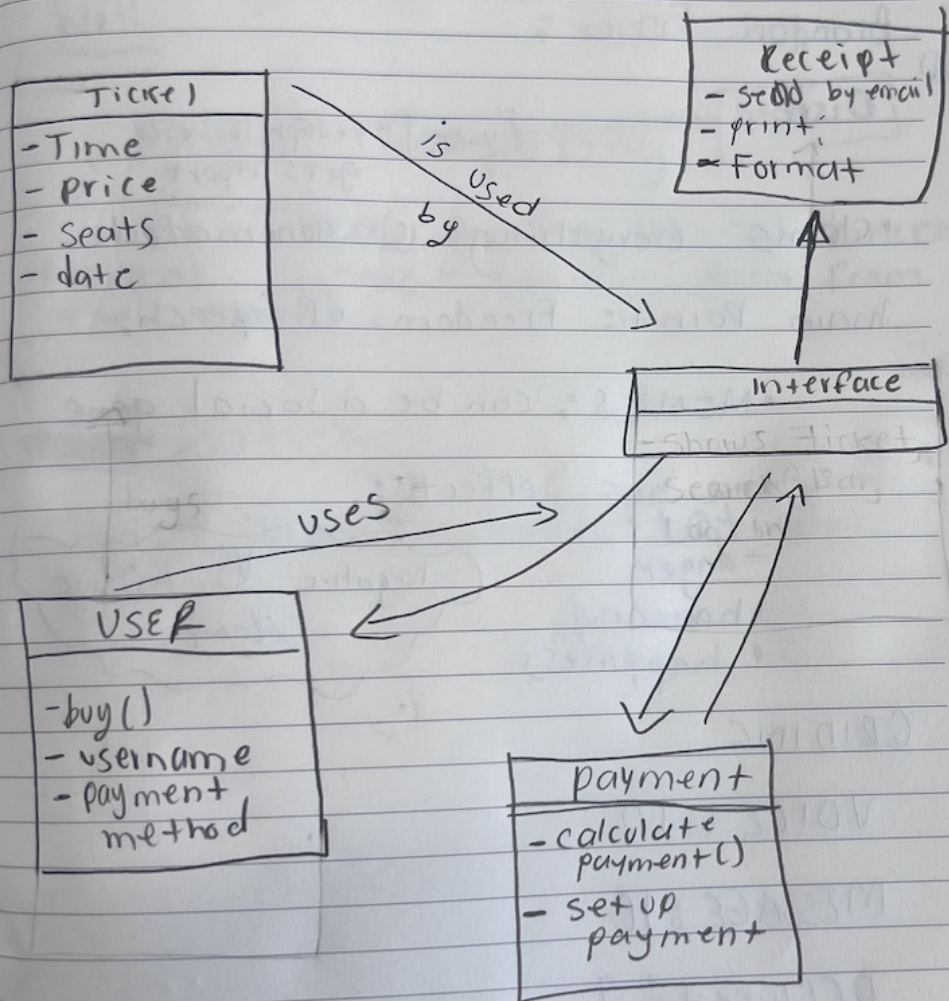 Ticket
- Time
- price
- seats
- date
is
used
by
Receipt
- send by email
- print
- Format
Interface
- Shows Ticket
uses
USER
- buy()
- username
- payment
method
payment
- calculate
payment()
- set up
payment